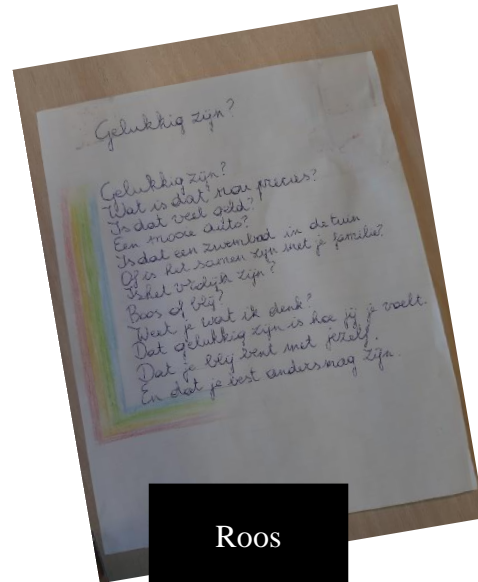 Gelukkig zijn?
Gelukkig zijn?
Wat is dat nou precies?
Is dat veel geld?
Een mooie auto?
Is dat een zwembad in de tuin
Of is het samen zijn met je familie?
Is het vrolijk zijn?
Boos of blij?
Weet je wat ik denk?
Dat gelukkig zijn is hoe jij je voelt.
Dat je blij bent met jezelf.
En dat je best anders mag zijn.
Roos